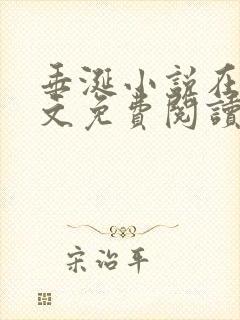 垂涎小说在
文免费閱讀
宋治平